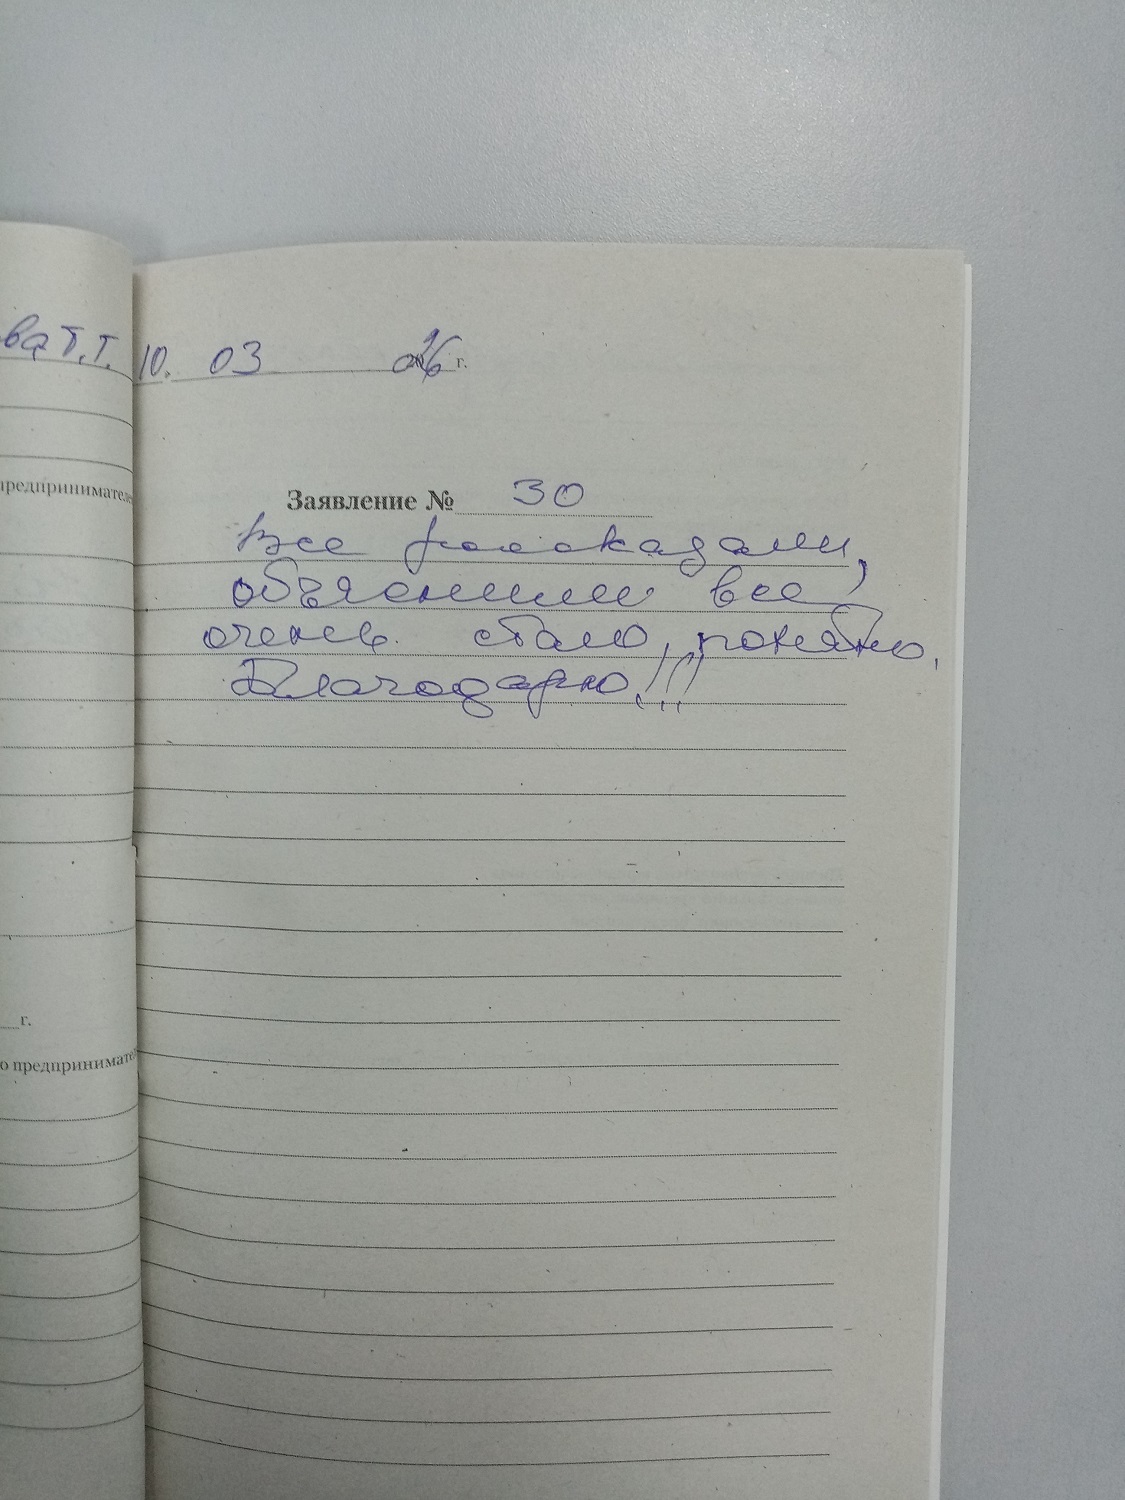 ва Т.Т. 10. 03 26 г.
предпринимателе
Заявление № 30
Все рассказали,
объяснили все,
очень стало понятно.
Благодарю!!!
г.
о предпринимател